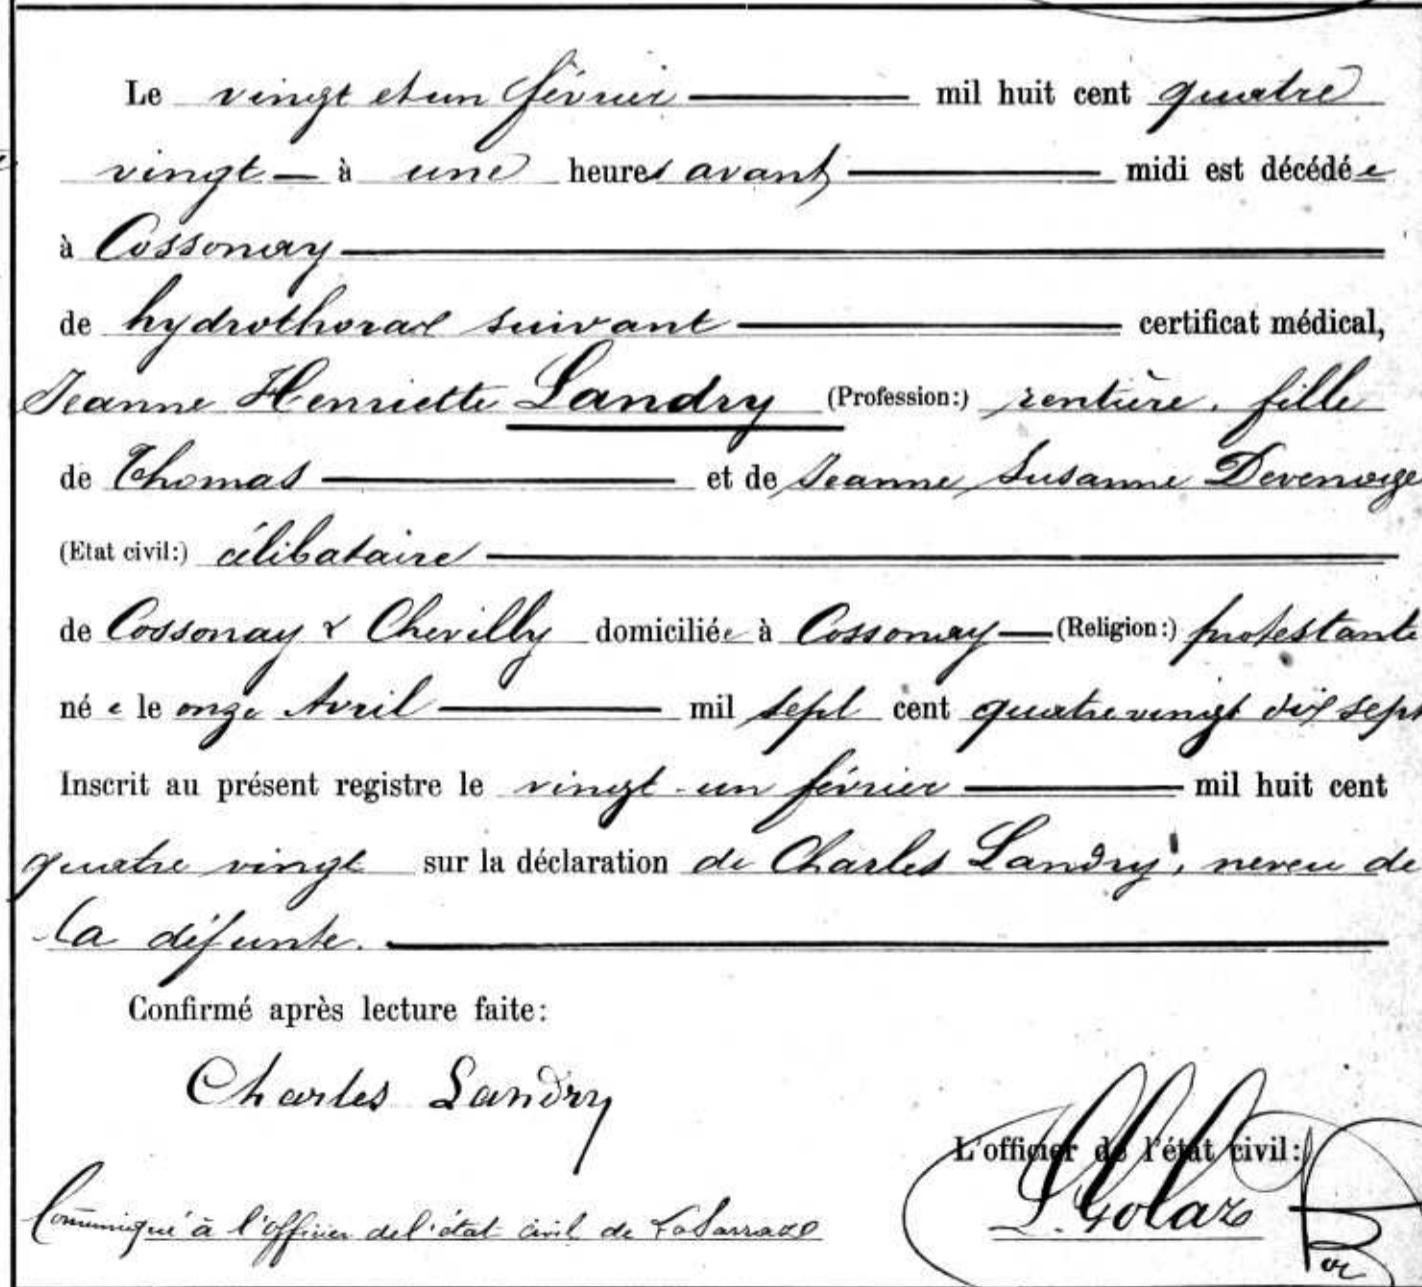 Le vingt et un février mil huit cent quatre
vingt — à une heures avant midi est décédée
à Cossonay
de hydrothorax suivant certificat médical,
Jeanne Henriette Landry (Profession:) rentière, fille
de Thomas et de Jeanne Susanne Devenoge
(Etat civil:) célibataire
de Cossonay & Chevilly domiciliée à Cossonay — (Religion:) protestante
née le onze Avril mil sept cent quatre vingt dix sept
Inscrit au présent registre le vingt-un février mil huit cent
quatre vingt sur la déclaration de Charles Landry, neveu de
la défunte.
Confirmé après lecture faite:
Charles Landry
L'officier de l'état civil:
L. Golaz
Communiqué à l'officier de l'état civil de LaSarraz